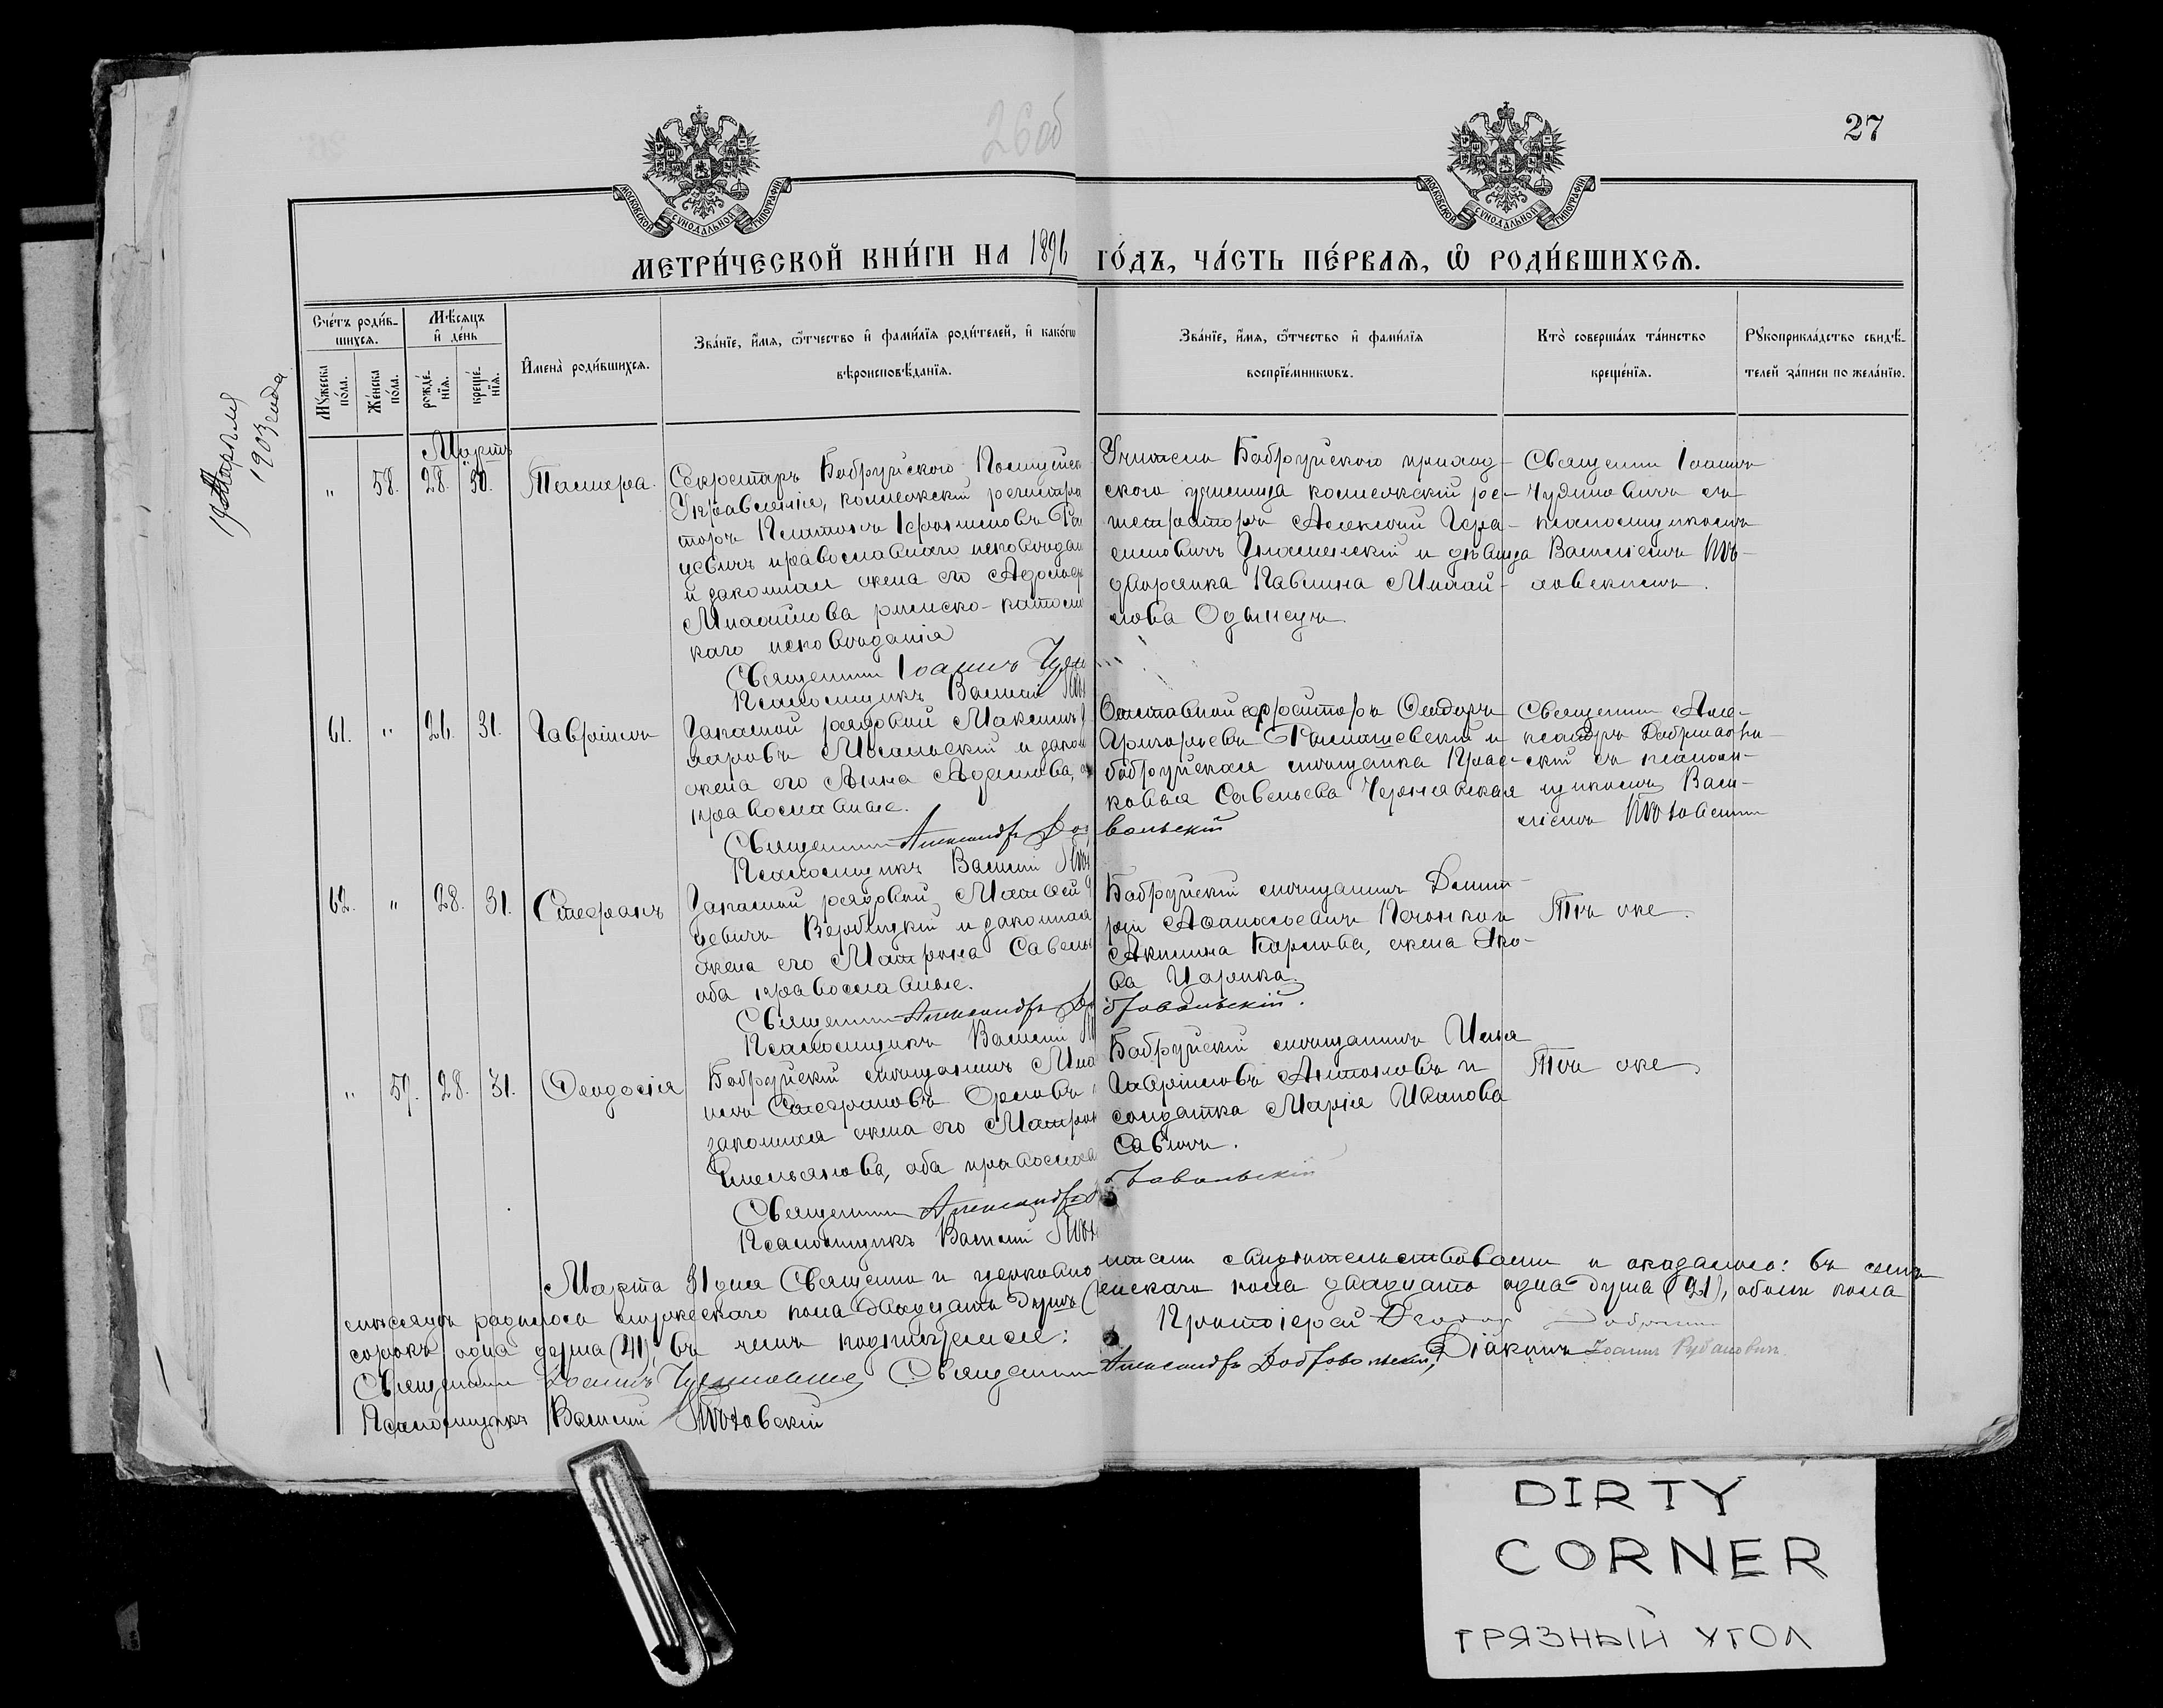 26об
27
МОСКОВСКОЙ СѴНОДАЛЬНОЙ ТИПОГРАФІИ
МОСКОВСКОЙ СѴНОДАЛЬНОЙ ТИПОГРАФІИ
МЕТРИ́ЧЕСКОЙ КНИ́ГИ НА 1896 ГО́ДЪ, ЧА́СТЬ ПЕ́РВАЯ, Ѿ РОДИ́ВШИХСЯ.
Сче́тъ роди́в-
шихся.
Мꙋжеска по́ла.
Же́нска по́ла.
Мѣ́сяцъ и҆ де́нь
рожде́-
нїя.
креще́-
нїя.
И҆мена̀ роди́вшихся.
Зва́нїе, и҆́мя, ѻ҆́тчество и҆ фами́лїя роди́телей, и҆ како́гѡ
вѣроисповѣ́данїя.
Зва́нїе, и҆́мя, ѻ҆́тчество и҆ фами́лїя
воспрїе́мникѡвъ.
Кто̀ соверша́лъ та́инство
креще́нїя.
Рꙋкоприкла́дство свидѣ́-
телей за́писи по жела́нїю.
1903 года
Мартъ
" 58. 28. 30. Тамара.
Секретарь Бобруйского Полицейск
Управленія, коллежскій регистра
торъ Платонъ
цевичъ православнаго исповѣдан
и законная жена его
Михайлова римско-католи
каго исповѣданія
Священникъ Іоаннъ
Псаломщикъ Василій
Учитель Бобруйского приход-
ского училища коллежскій ре-
гистраторъ Алексѣй Гера-
симовичъ и дѣвица
дворянка Павлина Михай-
лова Одынецъ.
Священникъ Іоаннъ
Чудиловичъ съ
псаломщикомъ
Василіемъ
61. " 26. 31. Гавріилъ
Запасной рядовой Максимъ
и закон
жена его Анна Адамова,
православные.
Священникъ Александръ До
бровольскій
Псаломщикъ Василій
Отставной ефрейторъ Ѳедоръ
Григорьевъ и
бобруйская мѣщанка
Савельева Чернявская
Священникъ Але-
ксандръ Доброволь-
скій съ псалом-
щикомъ Васи-
ліемъ
62. " 28. 31. Стефанъ
Запасной рядовой Матѳей
цевичъ Вербицкій и законная
жена его Матрона Савель
оба православные.
Священникъ Александръ До
бровольскій.
Псаломщикъ Василій
Бобруйскій мѣщанинъ Димит-
рій Аѳанасьевичъ и
Акилина Карпова, жена Яко-
ва Царика.
Тѣ же.
" 59. 28. 31. Ѳеодосія
Бобруйскій мѣщанинъ Миха
илъ Стефановъ Орловъ
законная жена его Матрон
Емельянова, оба правосла
Священникъ Александръ
бровольскій
Псаломщикъ Василій
Бобруйскій мѣщанинъ Илья
Гавріиловъ Антоновъ и
солдатка Марія Иванова
Савичъ.
Тѣ же
Марта 31 дня Священно и церковно свидѣтельствовали и оказалось: въ семъ
мѣсяцѣ родилось мужескаго пола двадцать душъ женскаго пола двадцать одна душа (21), обоего пола
сорокъ одна душа (41), въ чемъ подписуемся: Протоіерей
Священникъ Іоаннъ Чудиловичъ Священникъ Александръ Добровольскій, Діаконъ Іоаннъ Рубановичъ
Псаломщикъ Василій
DIRTY
CORNER
ГРЯЗНЫЙ УГОЛ